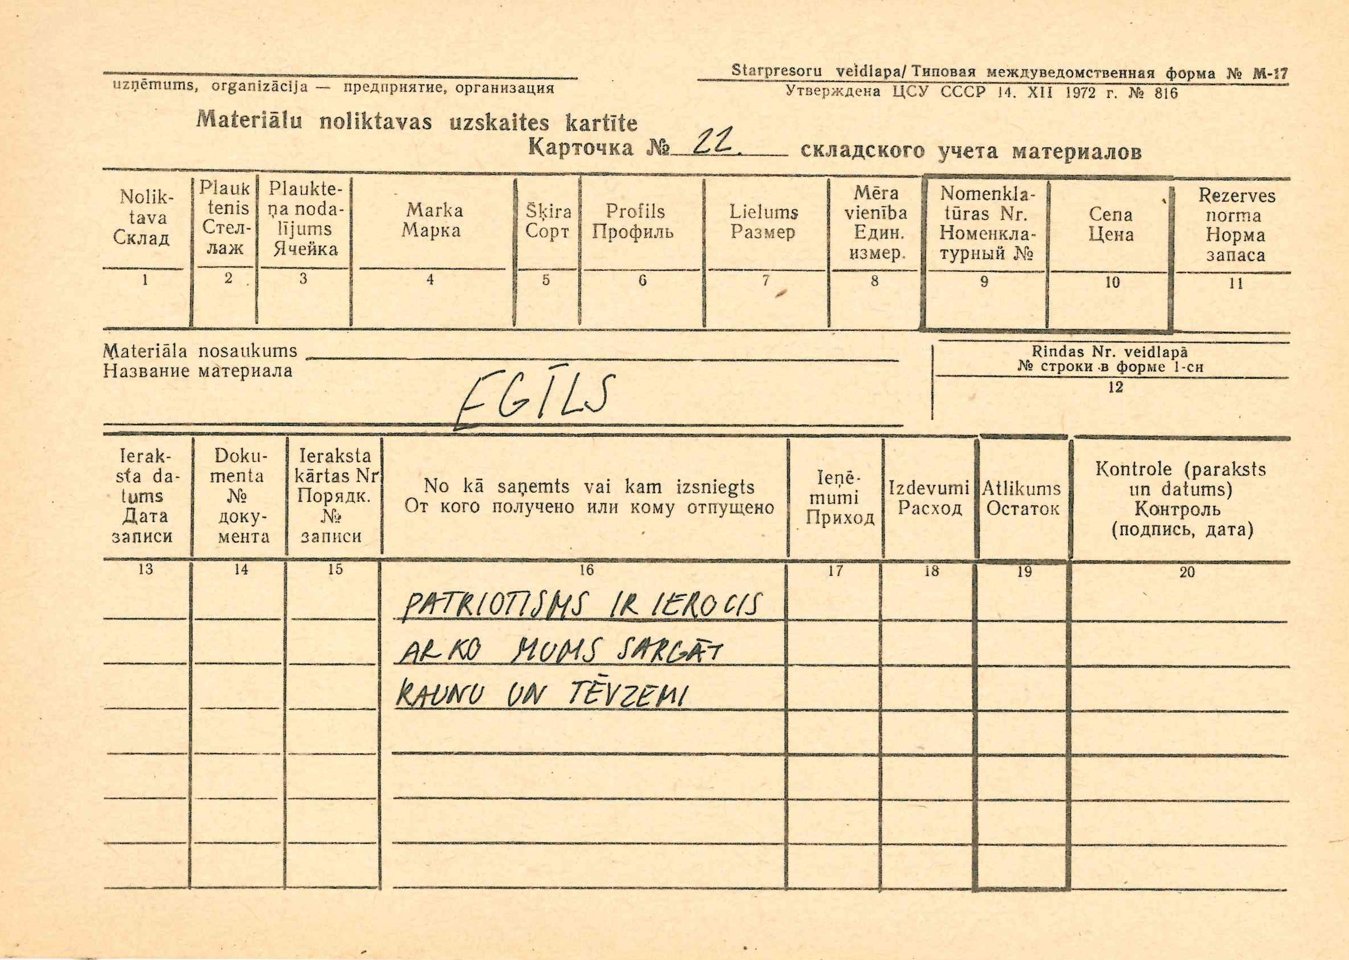 Starpresoru veidlapa/Типовая междуведомственная форма № М-17
uzņēmums, organizācija — предприятие, организация
Утверждена ЦСУ СССР 14. XII 1972 г. № 816
Materiālu noliktavas uzskaites kartīte
Карточка № 22. складского учета материалов
Nolik-
tava
Склад
Plauk
tenis
Стел-
лаж
Plaukte-
ņa noda-
lījums
Ячейка
Marka
Марка
Šķira
Сорт
Profils
Профиль
Lielums
Размер
Mēra
vienība
Един.
измер.
Nomenkla-
tūras Nr.
Номенкла-
турный №
Cena
Цена
Rezerves
norma
Норма
запаса
1 2 3 4 5 6 7 8 9 10 11
Materiāla nosaukums
Название материала
EGĪLS
Rindas Nr. veidlapā
№ строки в форме 1-сн
12
Ierak-
sta da-
tums
Дата
записи
Doku-
menta
№
доку-
мента
Ieraksta
kārtas Nr
Порядк.
№
записи
No kā saņemts vai kam izsniegts
От кого получено или кому отпущено
Ieņē-
mumi
Приход
Izdevumi
Расход
Atlikums
Остаток
Kontrole (paraksts
un datums)
Контроль
(подпись, дата)
13 14 15 16 17 18 19 20
PATRIOTISMS IR IEROCIS
AR KO MUMS SARGĀT
KAUNU UN TĒVZEMI